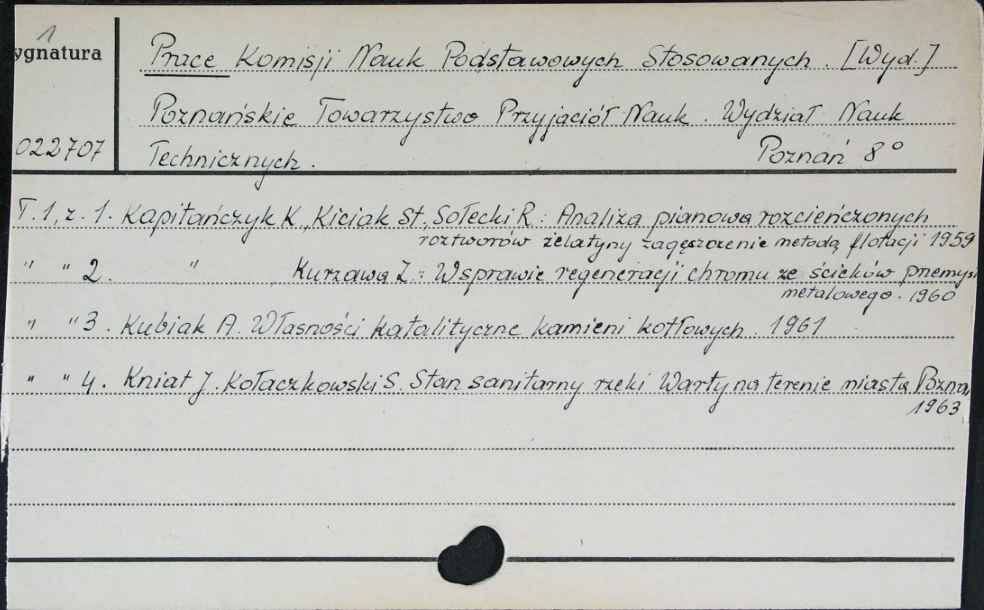 1
ygnatura
Prace Komisji Nauk Podstawowych Stosowanych. [Wyd.]
Poznańskie Towarzystwo Przyjaciół Nauk. Wydział Nauk
022707
Technicznych. Poznań 8°
T.1, z. 1. Kapitańczyk K., Kiciak St., Sołecki R.: Analiza pianowa rozcieńczonych
roztworów żelatyny zagęszczenie metodą flotacji 1959
" " 2. " Kurzawa Z.: W sprawie regeneracji chromu ze ścieków przemysł
metalowego. 1960
" " 3. Kubiak A. Własności katalityczne kamieni kotłowych. 1961
" " 4. Kniat J. Kołaczkowski S. Stan sanitarny rzeki Warty na terenie miasta Pozna
1963